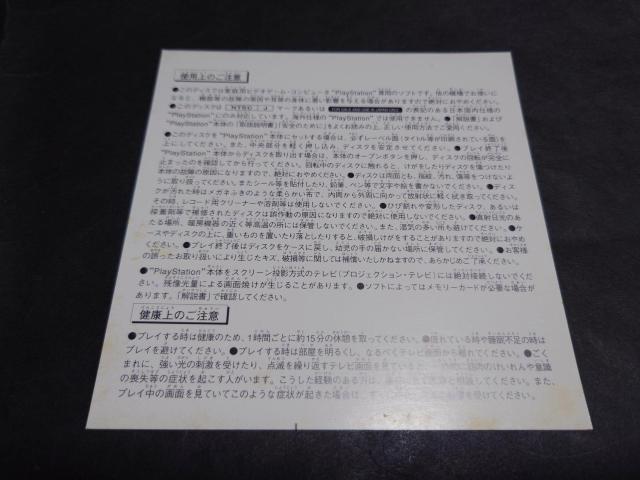 使用上のご注意
●このディスクは家庭用ビデオゲーム・コンピュータ"PlayStation"専用のソフトです。他の機種でお使いに
なると、機器等の故障の原因や耳等の身体に悪い影響を与える場合がありますので絶対におやめください。
●このディスクは NTSC J マークあるいは FOR SALE AND USE IN JAPAN ONLY の表記のある日本国内仕様の
"PlayStation"にのみ対応しています。海外仕様の"PlayStation"では使用できません。●「解説書」および
"PlayStation"本体の「取扱説明書」「安全のために」をよくお読みの上、正しい使用方法でご愛用ください。
●このディスクを"PlayStation"本体にセットする場合は、必ずレーベル面(タイトル等が印刷されている面)を
上にしてください。また、中央部分を軽く押し込み、ディスクを安定させてください。●プレイ終了後
"PlayStation"本体からディスクを取り出す場合は、本体のオープンボタンを押し、ディスクの回転が完全に
止まったのを確認してから行ってください。回転中のディスクに触れると、けがをしたりディスクを傷つけたり
本体の故障の原因になりますので、絶対におやめください。●ディスクは両面とも、指紋、汚れ、傷等をつけないよ
うに取り扱ってください。またシール等を貼付したり、鉛筆、ペン等で文字や絵を書かないでください。●ディス
クが汚れた時はメガネふきのような柔らかい布で、内周から外周に向かって放射状に軽く拭き取ってください。
その時、レコード用クリーナーや溶剤等は使用しないでください。●ひび割れや変形したディスク、あるいは
接着剤等で補修されたディスクは誤作動の原因になりますので絶対に使用しないでください。●直射日光のあ
たる場所、暖房機器の近く等高温の所には保管しないでください。また、湿気の多い所も避けてください。●ケ
ースやディスクの上に、重いものを置いたり落としたりすると、破損しけがをすることがありますので絶対におやめ
ください。●プレイ終了後はディスクをケースに戻し、幼児の手の届かない場所に保管してください。●お客様
の誤ったお取り扱いにより生じたキズ、破損等に関しては補償いたしかねますので、あらかじめご了承ください。
●"PlayStation"本体をスクリーン投影方式のテレビ(プロジェクション・テレビ)には絶対接続しないでくだ
さい。残像光量による画面焼けが生じることがあります。●ソフトによってはメモリーカードが必要な場合が
あります。「解説書」で確認してください。
健康上のご注意
●プレイする時は健康のため、1時間ごとに約15分の休憩を取ってください。●疲れている時や睡眠不足の時は
プレイを避けてください。●プレイする時は部屋を明るくし、なるべくテレビ画面から離れてください。●ごく
まれに、強い光の刺激を受けたり、点滅を繰り返すテレビ画面を見ていると、一時的に筋肉のけいれんや意識
の喪失等の症状を起こす人がいます。こうした経験のある方は、事前に必ず医師と相談してください。また、
プレイ中の画面を見ていてこのような症状が起きた場合は、すぐに を受けてください。